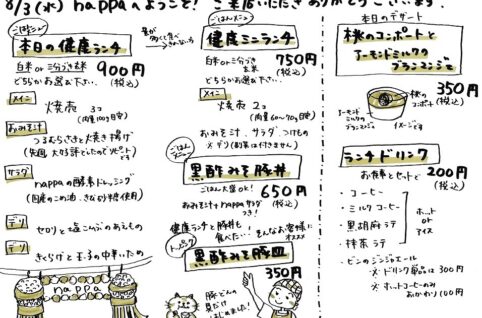 8/3(水) nappaへようこそ! ご来店いただきありがとうございます!
ごはんメニュー
本日の健康ランチ
白米 or 三分づき玄米
どちらかお選び下さい。
900円
(税込)
メイン
焼売 3コ
(肉量100g目安)
おみそ汁
つるむらさきと焼き揚げ
(先週、大好評でしたのでリピートです)
サラダ
nappaの酵素ドレッシング
(国産のこめ油、きび砂糖使用)
デリ
セロリと塩こんぶのあえもの
デリ
きくらげと玉子の中華いため
nappa
量が多くて食べきれない方
ごはんメニュー
健康ミニランチ
白米 or 三分づき玄米
どちらかお選び下さい。
750円
(税込)
メイン
焼売 2コ
(肉量60~70g目安)
おみそ汁、サラダ、つけもの
※デリ(副菜は付きません)
ごはんメニュー
黒酢みそ豚丼
ごはん大盛OK!
650円
(税込)
おみそ汁+nappaサラダつき!
健康ランチと豚丼も食べた..!
そんなお客様にオススメ
トッピング
黒酢みそ豚皿
350円
豚どんの具だけ
はじめました!
本日のデザート
桃のコンポートと
アーモンドミルクの
ブランマンジェ
350円
(税込)
桃のコンポート
アーモンドミルクのブランマンジェ
イメージです
ランチドリンク
お食事とセットで
200円
(税込)
・コーヒー
・ミルクコーヒー
・黒胡麻ラテ
・抹茶ラテ
ホット or アイス
・ビンのジンジャエール
※ドリンク単品は300円
※ホットコーヒーのみ
おかわり100円